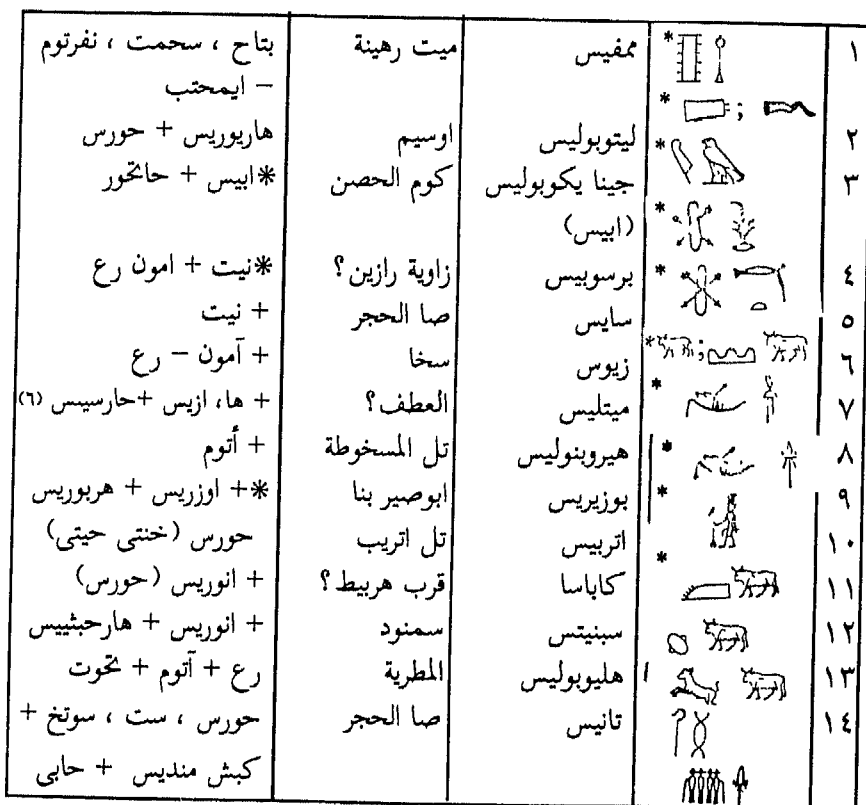 ١ ممفيس ميت رهينة بتاح ، سحمت ، نفرتوم
– ايمحتب
٢ ليتوبوليس اوسيم هاريوريس + حورس
٣ جينا يكوبوليس كوم الحصن *ابيس + حاتحور
(ابيس)
٤ برسوبيس زاوية رازين؟ *نيت + امون رع
٥ سايس صا الحجر + نيت
٦ زيوس سخا + آمون – رع
٧ ميتليس العطف؟ + ها، ازيس +حارسيس (٦)
٨ هيروبنوليس تل المسخوطة + أتوم
٩ بوزيريس ابوصير بنا *+ اوزريس + هربوريس
١٠ اتربيس تل اتريب حورس (خنتى حيتى)
١١ كاباسا قرب هربيط؟ + انوريس (حورس)
١٢ سبنيتس سمنود + انوريس + هارحبثييس
١٣ هليوبوليس المطرية رع + آتوم + تحوت
١٤ تانيس صا الحجر حورس ، ست ، سوتخ +
كبش منديس + حابى